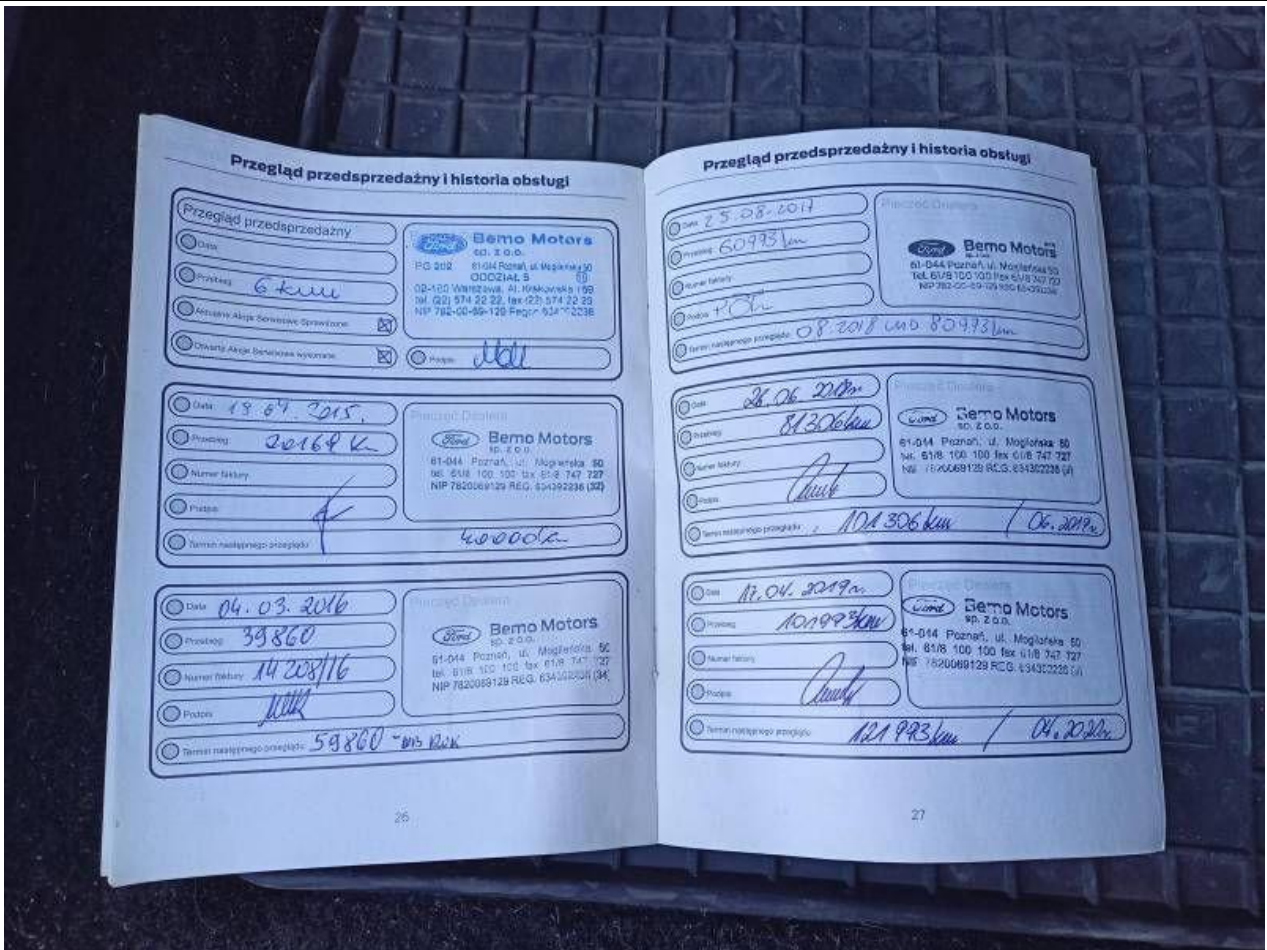 Przegląd przedsprzedażny i historia obsługi
Przegląd przedsprzedażny
Data
Przebieg 6 km
Aktualne Akcje Serwisowe Sprawdzone
Otwarte Akcje Serwisowe wykonane
Ford Bemo Motors
sp. z o.o.
PG 202 61-044 Poznań,
ODDZIAŁ 5
02-120 Warszawa, Al. Krakowska
tel. (22) 574 22 22, fax (22) 574 22 23
NIP 782-00-69-129
Podpis
Data 2015.
Przebieg 20169 K
Numer faktury
Podpis
Termin następnego przeglądu 40000
Pieczęć Dealera
Ford Bemo Motors
sp. z o.o.
61-044 Poznań, ul. Mogileńska 50
tel. 61/8 100 100 fax 61/8 747 727
NIP 7820069129 REG. 634392236 (32)
Data 04.03.2016
Przebieg 39860
Numer faktury 14208/16
Podpis
Termin następnego przeglądu 59860
Pieczęć Dealera
Ford Bemo Motors
sp. z o.o.
61-044 Poznań, ul. Mogileńska 50
tel. 61/8 100 100 fax 61/8 747 727
NIP 7820069129 REG. (34)
26
Przegląd przedsprzedażny i historia obsługi
Data 25.08.2017
Przebieg 60993 km
Numer faktury
Podpis
Termin następnego przeglądu 08.2018 80993 km
Pieczęć Dealera
Ford Bemo Motors
61-044 Poznań, ul. Mogileńska 50
Tel. 61/8 100 100 Fax 61/8 747 727
NIP 782-00-69-129
Data 26.06.2018r.
Przebieg 81306 km
Numer faktury
Podpis
Termin następnego przeglądu 101 306 km / 06.2019r.
Pieczęć Dealera
Ford Bemo Motors
sp. z o.o.
61-044 Poznań, ul. Mogileńska 50
tel. 61/8 100 100 fax 61/8 747 727
NIP 7820069129 REG.
Data 17.04.2019r.
Przebieg 101993 km
Numer faktury
Podpis
Termin następnego przeglądu 121 993 km / 04.2020r.
Pieczęć Dealera
Ford Bemo Motors
sp. z o.o.
61-044 Poznań, ul. Mogileńska 50
tel. 61/8 100 100 fax 61/8 747 727
NIP 7820069129 REG.
27